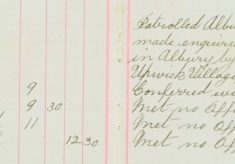 Patrolled Albu
made enquiri
in Albury by
Upwick Village
9 Conferred w
9 30 Met no Offi
11 Met no Of
12 30 Met no Off